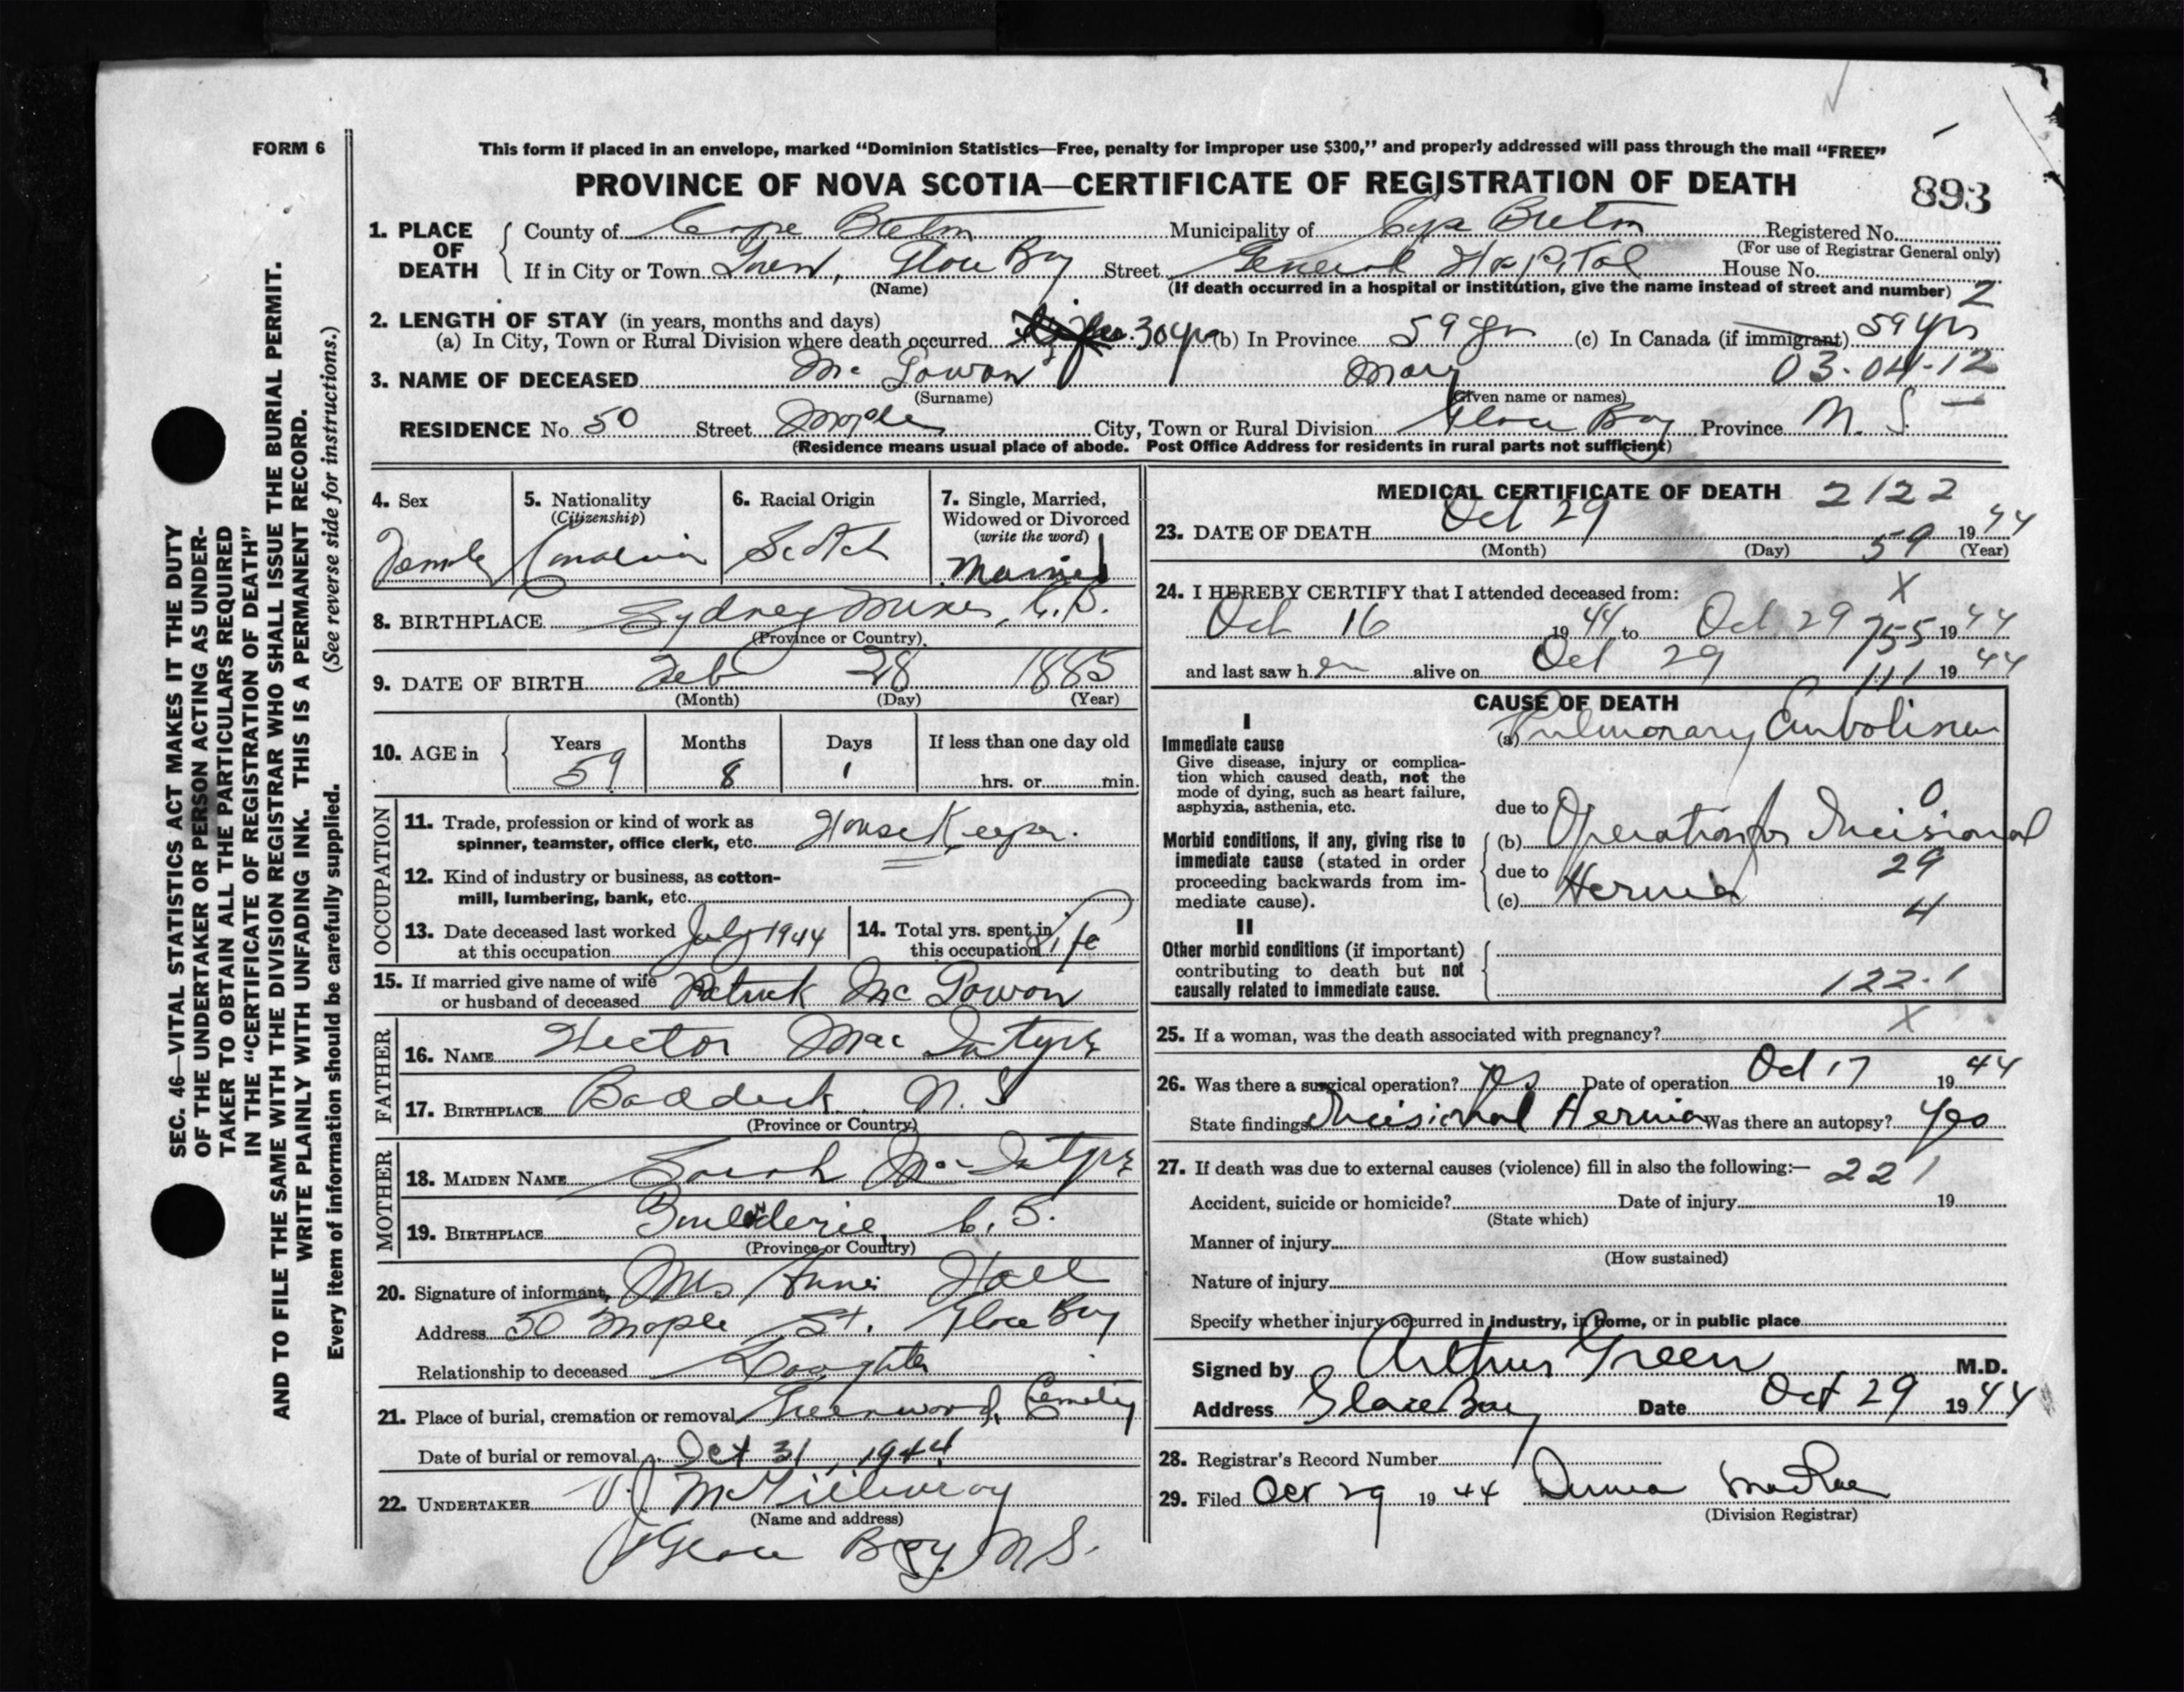 FORM 6
This form if placed in an envelope, marked “Dominion Statistics—Free, penalty for improper use $300,” and properly addressed will pass through the mail “FREE”
PROVINCE OF NOVA SCOTIA—CERTIFICATE OF REGISTRATION OF DEATH 893
1. PLACE OF DEATH County of Cape Breton Municipality of Cape Breton Registered No.
(For use of Registrar General only)
If in City or Town Town, Glace Bay Street General Hospital House No.
(Name) (If death occurred in a hospital or institution, give the name instead of street and number) 2
2. LENGTH OF STAY (in years, months and days)
(a) In City, Town or Rural Division where death occurred 30 yrs (b) In Province 59 yrs (c) In Canada (if immigrant) 59 yrs
3. NAME OF DECEASED Mc Gowan Mary 03-04-12
(Surname) (Given name or names)
RESIDENCE No. 50 Street Maple City, Town or Rural Division Glace Bay Province N. S.
(Residence means usual place of abode. Post Office Address for residents in rural parts not sufficient)
4. Sex 5. Nationality (Citizenship) 6. Racial Origin 7. Single, Married, Widowed or Divorced (write the word)
Female Canadian Scotch Married
8. BIRTHPLACE Sydney Mines, C.B.
(Province or Country)
9. DATE OF BIRTH Feb 28 1885
(Month) (Day) (Year)
10. AGE in Years Months Days If less than one day old
59 8 1 hrs. or min.
OCCUPATION
11. Trade, profession or kind of work as spinner, teamster, office clerk, etc. House Keeper.
12. Kind of industry or business, as cotton-mill, lumbering, bank, etc.
13. Date deceased last worked at this occupation July 1944 14. Total yrs. spent in this occupation Life
15. If married give name of wife or husband of deceased Patrick Mc Gowan
FATHER
16. NAME Hector Mac Intyre
17. BIRTHPLACE Baddeck N. S
(Province or Country)
MOTHER
18. MAIDEN NAME Sarah Mc Intyre
19. BIRTHPLACE C. B.
(Province or Country)
20. Signature of informant Mrs Annie Hall
Address 50 Maple St. Glace Bay
Relationship to deceased Daughter
21. Place of burial, cremation or removal Greenwood Cemetery
Date of burial or removal Oct 31, 1944
22. UNDERTAKER V. J. McGillivray
(Name and address)
Glace Bay N S.
MEDICAL CERTIFICATE OF DEATH 2122
23. DATE OF DEATH Oct 29 59 1944
(Month) (Day) (Year)
24. I HEREBY CERTIFY that I attended deceased from: X
Oct 16 1944 to Oct 29 755 1944
and last saw her alive on Oct 29 111 1944
CAUSE OF DEATH
I
Immediate cause (a) Pulmonary Embolism
Give disease, injury or complication which caused death, not the mode of dying, such as heart failure, asphyxia, asthenia, etc.
due to 0
Morbid conditions, if any, giving rise to immediate cause (stated in order proceeding backwards from immediate cause).
(b) Operation for Incisional
due to 29
(c) Hernia 4
II
Other morbid conditions (if important) contributing to death but not causally related to immediate cause.
122.1
25. If a woman, was the death associated with pregnancy? X
26. Was there a surgical operation? Yes Date of operation Oct 17 1944
State findings Incisional Hernia Was there an autopsy? Yes
27. If death was due to external causes (violence) fill in also the following:— 221
Accident, suicide or homicide? Date of injury 19
(State which)
Manner of injury
(How sustained)
Nature of injury
Specify whether injury occurred in industry, in home, or in public place
Signed by Arthur Green M.D.
Address Glace Bay Date Oct 29 1944
28. Registrar's Record Number
29. Filed Oct 29 1944 MacRae
(Division Registrar)
SEC. 46—VITAL STATISTICS ACT MAKES IT THE DUTY
OF THE UNDERTAKER OR PERSON ACTING AS UNDER-
TAKER TO OBTAIN ALL THE PARTICULARS REQUIRED
IN THE “CERTIFICATE OF REGISTRATION OF DEATH”
AND TO FILE THE SAME WITH THE DIVISION REGISTRAR WHO SHALL ISSUE THE BURIAL PERMIT.
WRITE PLAINLY WITH UNFADING INK. THIS IS A PERMANENT RECORD.
Every item of information should be carefully supplied. (See reverse side for instructions.)